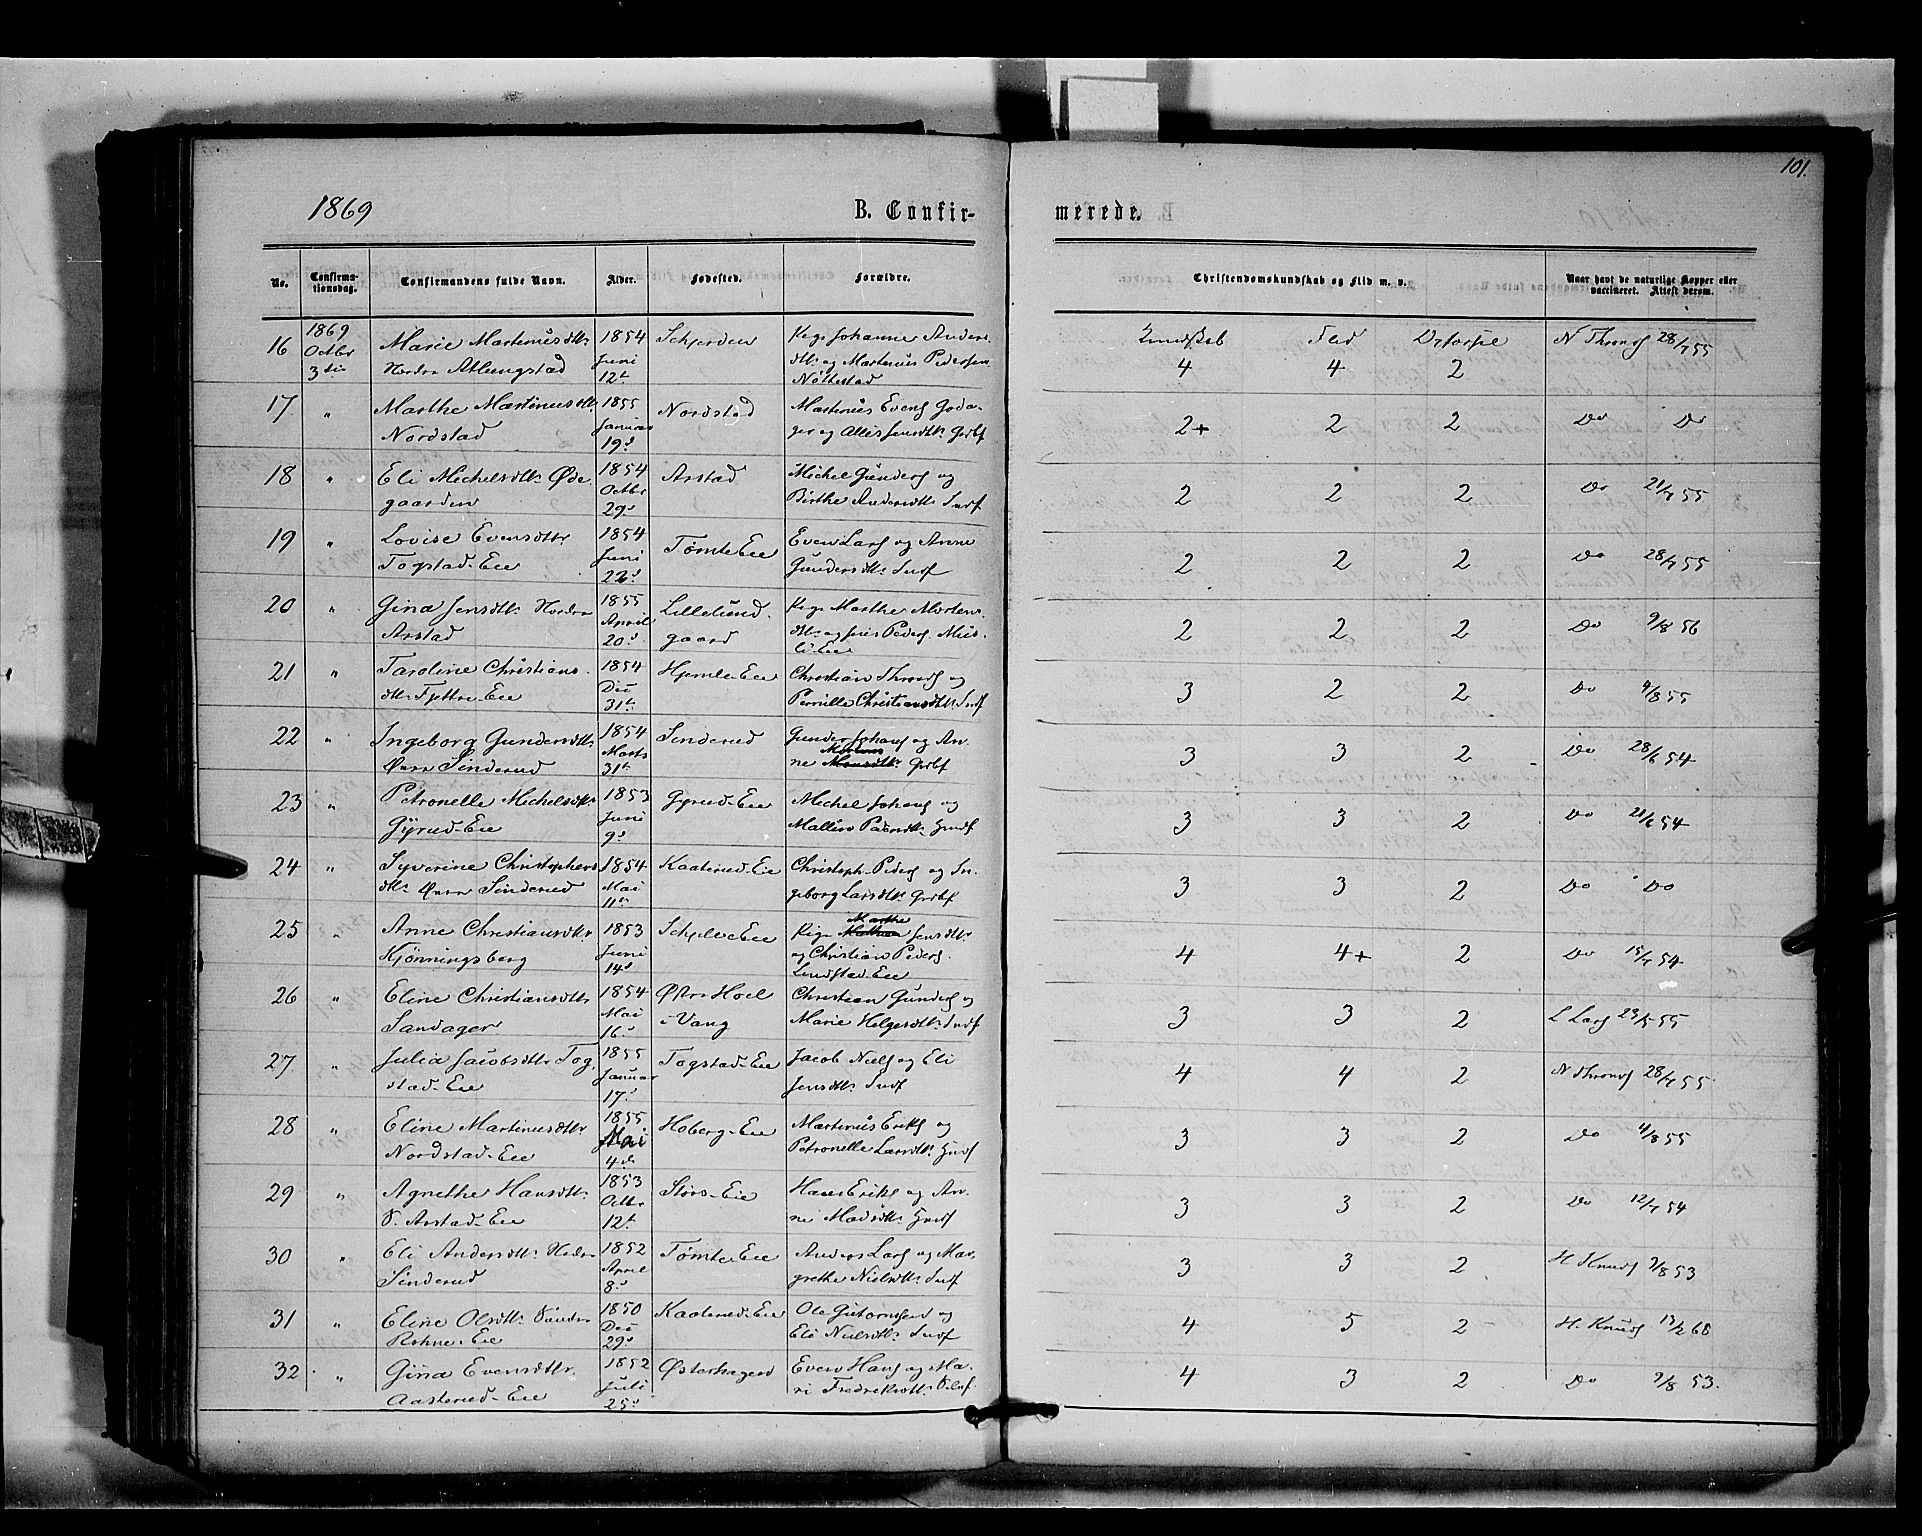 101.
1869
B. Confir-
merede.
No.
Confirma-
tionsdag.
Confirmandens fulde Navn.
Alder.
Fødested.
Forældre.
Christendomskundskab og Flid m. v.
Naar havt de naturlige Kopper eller
vaccineret. Attest derom.
16 1869 Octbr 3die Marie Martinusdtr. Nordre Atlungstad 1854 Juni 12te Schjerden Pige Johanne Anders- dtr. og Martinus Pedersen Nøttestad Kundskab 4 Flid 4 2 N Thrones 28/7 55
17 " Marthe Martinusdtr. Nordstad 1855 Januar 19de Nordstad Martinus Evens Goda- ger og Jensdtr. Grbf 2+ 2 2 Do Do
18 " Eli Michelsdtr. Øde- gaarden 1854 Octbr 29de Arstad Michel Gunders og Birthe Andersdtr. Indf 2 2 2 Do 21/7 55
19 " Lovise Evensdtr Togstad-Eie 1854 Juni 22de Tømte Eie Even Lars og Anne Gundersdtr. Indf 2 2 2 Do 28/7 55
20 " Gina Jensdtr. Nordre Arstad 1855 April 20de Lillelund- gaard Pige Marthe Mortens- dtr. og Jens Peders Mus- li-Eie 2 2 2 Do 9/8 56
21 " Caroline Christians- dtr. Tjettre-Eie 1854 Dec 31te Hjemle Eie Christian Throns og Pernille Christiansdtr. Indf 3 2 2 Do 4/8 55
22 " Ingeborg Gundersdtr. Øvre Sinderud 1854 Marts 31te Sinderud Gunder Johans og An- ne Grbf 3 3 2 Do 28/6 54
23 " Petronelle Michelsdtr. Gyrud-Eie 1853 Juni 9de Gyrud-Eie Michel Johans og Pedersdtr. Indf 3 3 2 Do 21/6 54
24 " Syverine Christophers- dtr. Øvre Sinderud 1854 Mai 11te Kaaterud-Eie Christoph. Peders og In- geborg Larsdtr. Grbf 3 3 2 Do Do
25 " Anne Christiansdtr. Kjønningsberg 1853 Juni 14de Schjelve Eie Pige Marthe Jensdtr. og Christian Peders. Lindstad-Eie 4 4+ 2 Do 15/7 54
26 " Eline Christiansdtr. Sandager 1854 Mai 16de Østre Hoel i Vang Christian Gunders og Marie Helgesdtr. Indf 3 3 2 L Lars 23/5 55
27 " Julia Jacobsdtr. Tog- stad-Eie 1855 Januar 17de Togstad-Eie Jacob Niels og Eli Jensdtr. Indf 4 4 2 N Thrones 28/7 55
28 " Eline Martinusdtr Nordstad-Eie 1855 Mai 4de Hoberg-Eie Martinus Eriks og Petronelle Larsdtr. Indf 3 3 2 Do 4/8 55
29 " Agnethe Hansdtr. S. Arstad-Eie 1853 Octbr 12te Størs-Eie Hans Eriks og An- ne Madsdtr. Indf 3 3 2 Do 12/7 54
30 " Eli Andersdtr. Nedre Sinderud 1852 April 8de Tømte Eie Anders Lars og Mar- grethe Nielsdtr. Indf 3 3 2 H Knuds 9/8 53
31 " Eline Olsdtr. Søndre Rohne-Eie 1850 Dec 29de Kaaterud-Eie Ole Gutormsen og Eli Nielsdtr. Indf 4 5 2- H. Knuds 19/2 68
32 " Gina Evensdtr. Aasterud-Eie 1852 Juli 25de Østerhagen Even Hans og Ma- ri Fredriksdtr. Selvf 4 3 2 Do 9/8 53.